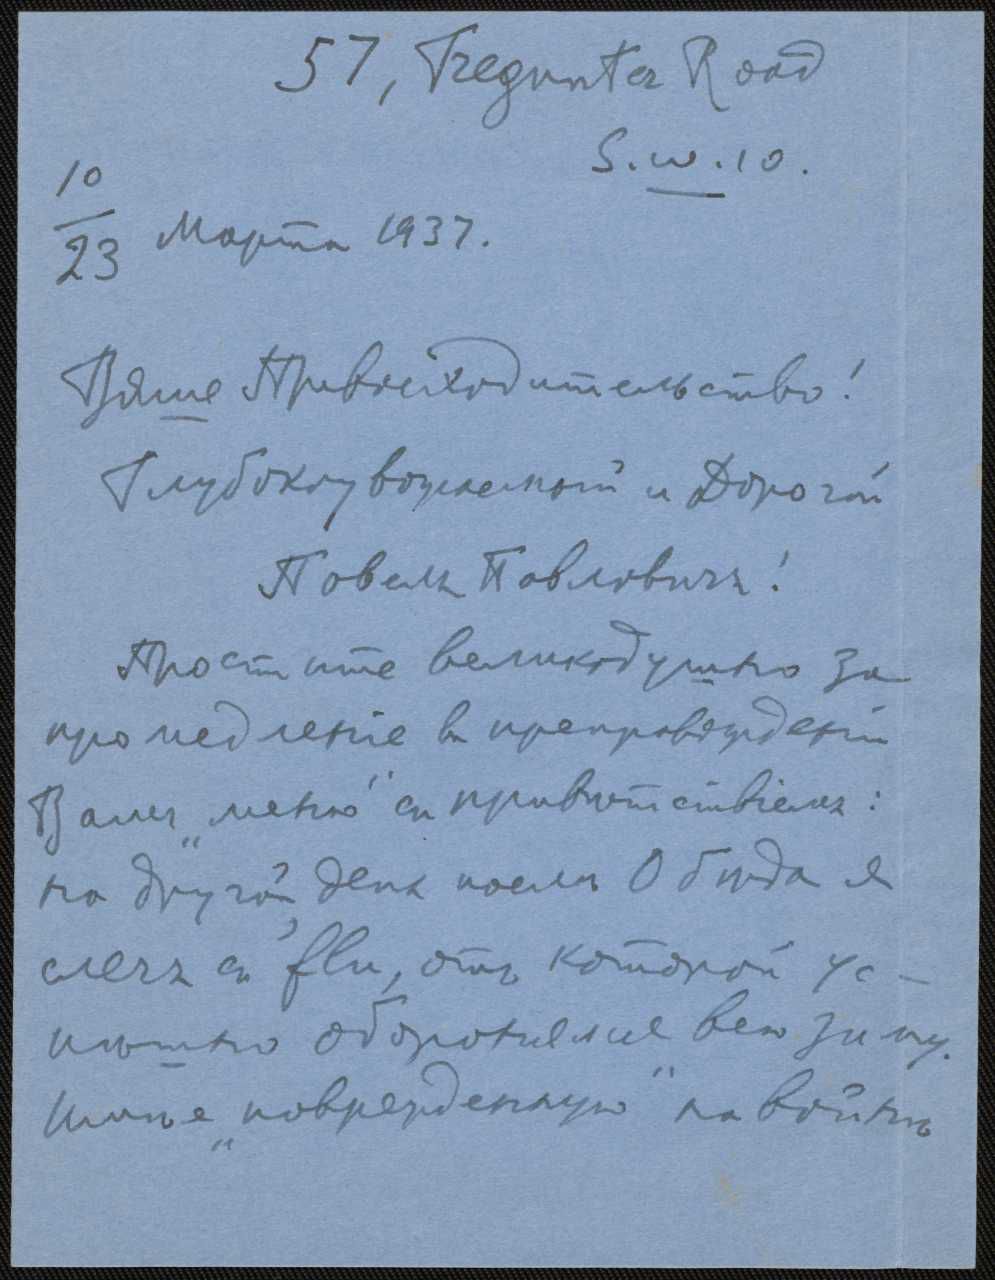 57, Tregunter Road
S.W.10.
10/23 Марта 1937.
Ваше Превосходительство!
Глубокоуважаемый и Дорогой
Павелъ Павловичъ!
Простите великодушно за
промедленіе въ препровожденіи
Вамъ „меню“ съ привѣтствіемъ:
на другой день послѣ Обѣда я
слегъ съ flu, отъ которой ус-
пѣшно оборонялся всю зиму.
Имѣя „поврежденную“ на войнѣ